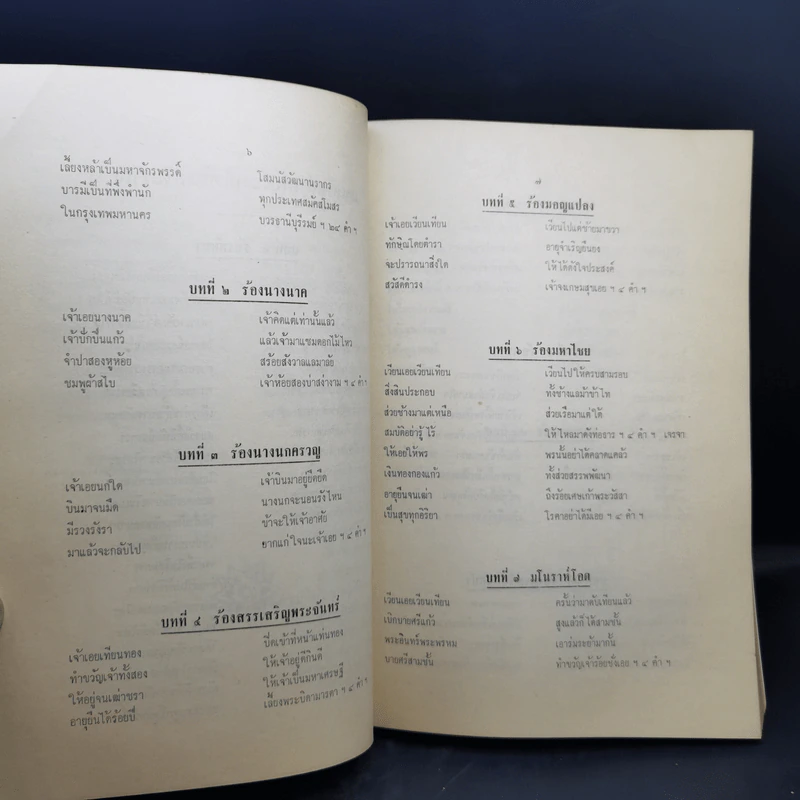 ๖
เลี้ยงหล้าเป็นมหาจักรพรรดิ์ โสมนัสวัฒนานรากร
บารมีเป็นที่พึ่งพำนัก ทุกประเทศสมัคสโมสร
ในกรุงเทพมหานคร บวรธานีบุรีรมย์ ฯ ๒๔ คำ ฯ
บทที่ ๒ ร้องนางนาค
เจ้าเอยนางนาค เจ้าคิดแต่เท่านั้นแล้ว
เจ้าปักปิ่นแก้ว แล้วเจ้ามาแซมดอกไม้ไหว
จำปาสองหูห้อย สร้อยสังวาลแลมาลัย
ชมพูผ้าสไบ เจ้าห้อยสองบ่าสง่างาม ฯ ๔ คำ ฯ
บทที่ ๓ ร้องนางนกครวญ
เจ้าเอยนกใด เจ้าบินมาอยู่ยืดยืด
บินมาจนมืด นางนกจะนอนรังไหน
มีรวงรังรา ข้าจะให้เจ้าอาศัย
มาแล้วจะกลับไป ยากแก่ใจนะเจ้าเอย ฯ ๔ คำ ฯ
บทที่ ๔ ร้องสรรเสริญพระจันทร์
เจ้าเอยเทียนทอง ปิดเข้าที่หน้าแท่นทอง
ทำขวัญเจ้าทั้งสอง ให้เจ้าอยู่ดีกินดี
ให้อยู่จนเฒ่าชรา ให้เจ้าเป็นมหาเศรษฐี
อายุยืนได้ร้อยปี เลี้ยงพระบิดามารดา ฯ ๔ คำ ฯ
๗
บทที่ ๕ ร้องมอญแปลง
เจ้าเอยเวียนเทียน เวียนไปแต่ซ้ายมาขวา
ทักษิณโดยตำรา อายุจำเริญยืนยง
จะปรารถนาสิ่งใด ให้ได้ดังใจประสงค์
สวัสดีดำรง เจ้าจงเกษมสุขเอย ฯ ๔ คำ ฯ
บทที่ ๖ ร้องมหาไชย
เวียนเอยเวียนเทียน เวียนไปให้ครบสามรอบ
สิ่งสินประกอบ ทั้งช้างแลม้าข้าไท
ส่วยช้างมาแต่เหนือ ส่วยเรือมาแต่ใต้
สมบัติอย่ารู้ไร้ ให้ไหลมาดังท่อธาร ฯ ๔ คำ ฯ เจรจา
ให้เอยให้พร พรนั้นอย่าได้คลาดแคล้ว
เงินทองกองแก้ว ทั้งส่วยสรรพพัฒนา
อายุยืนจนเฒ่า ถึงร้อยเศษเก้าพระวัสสา
เป็นสุขทุกอิริยา โรคาอย่าได้มีเอย ฯ ๔ คำ ฯ
บทที่ ๗ มโนราห์โอด
เวียนเอยเวียนเทียน ครั้นว่ามาดับเทียนแล้ว
เบิกบายศรีแก้ว สูงแล้วก็ได้สามชั้น
พระอินทร์พระพรหม เอาร่มระย้ามากั้น
บายศรีสามชั้น ทำขวัญเจ้าร้อยชั่งเอย ฯ ๔ คำ ฯ